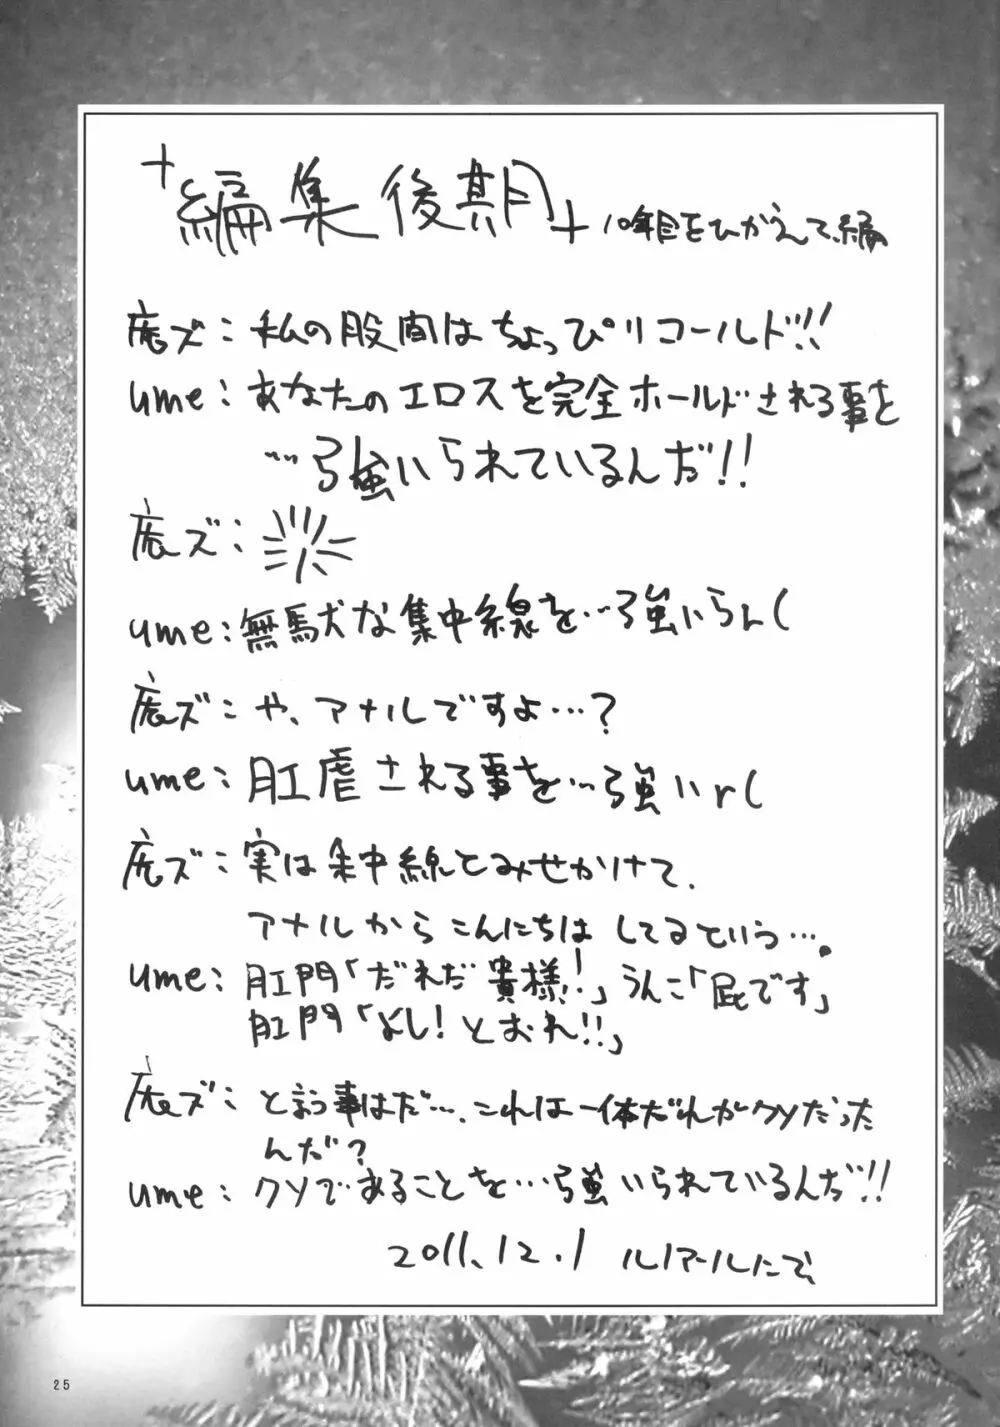 +編集後期+ 10年目をひかえて、編
鹿ズ：私の股間はちょっぴりコールド!!!
ume：あなたのエロスを完全ホールドされる事を
…強いられているんだ!!
鹿ズ：
ume：無駄な集中線を…強いらん(
鹿ズ：や、アナルですよ…？
ume：肛虐される事を…強いr(
鹿ズ：実は集中線とみせかけて、
アナルからこんにちはしてるという…。
ume：肛門「だれだ貴様!!」うんこ「屁です」
肛門「よし！とおれ!!」
鹿ズ：と言う事はだ…、これは一体だれがクソだった
んだ？
ume：クソであることを…強いられているんだ!!
2011.12.1 ルノアールにて、
25